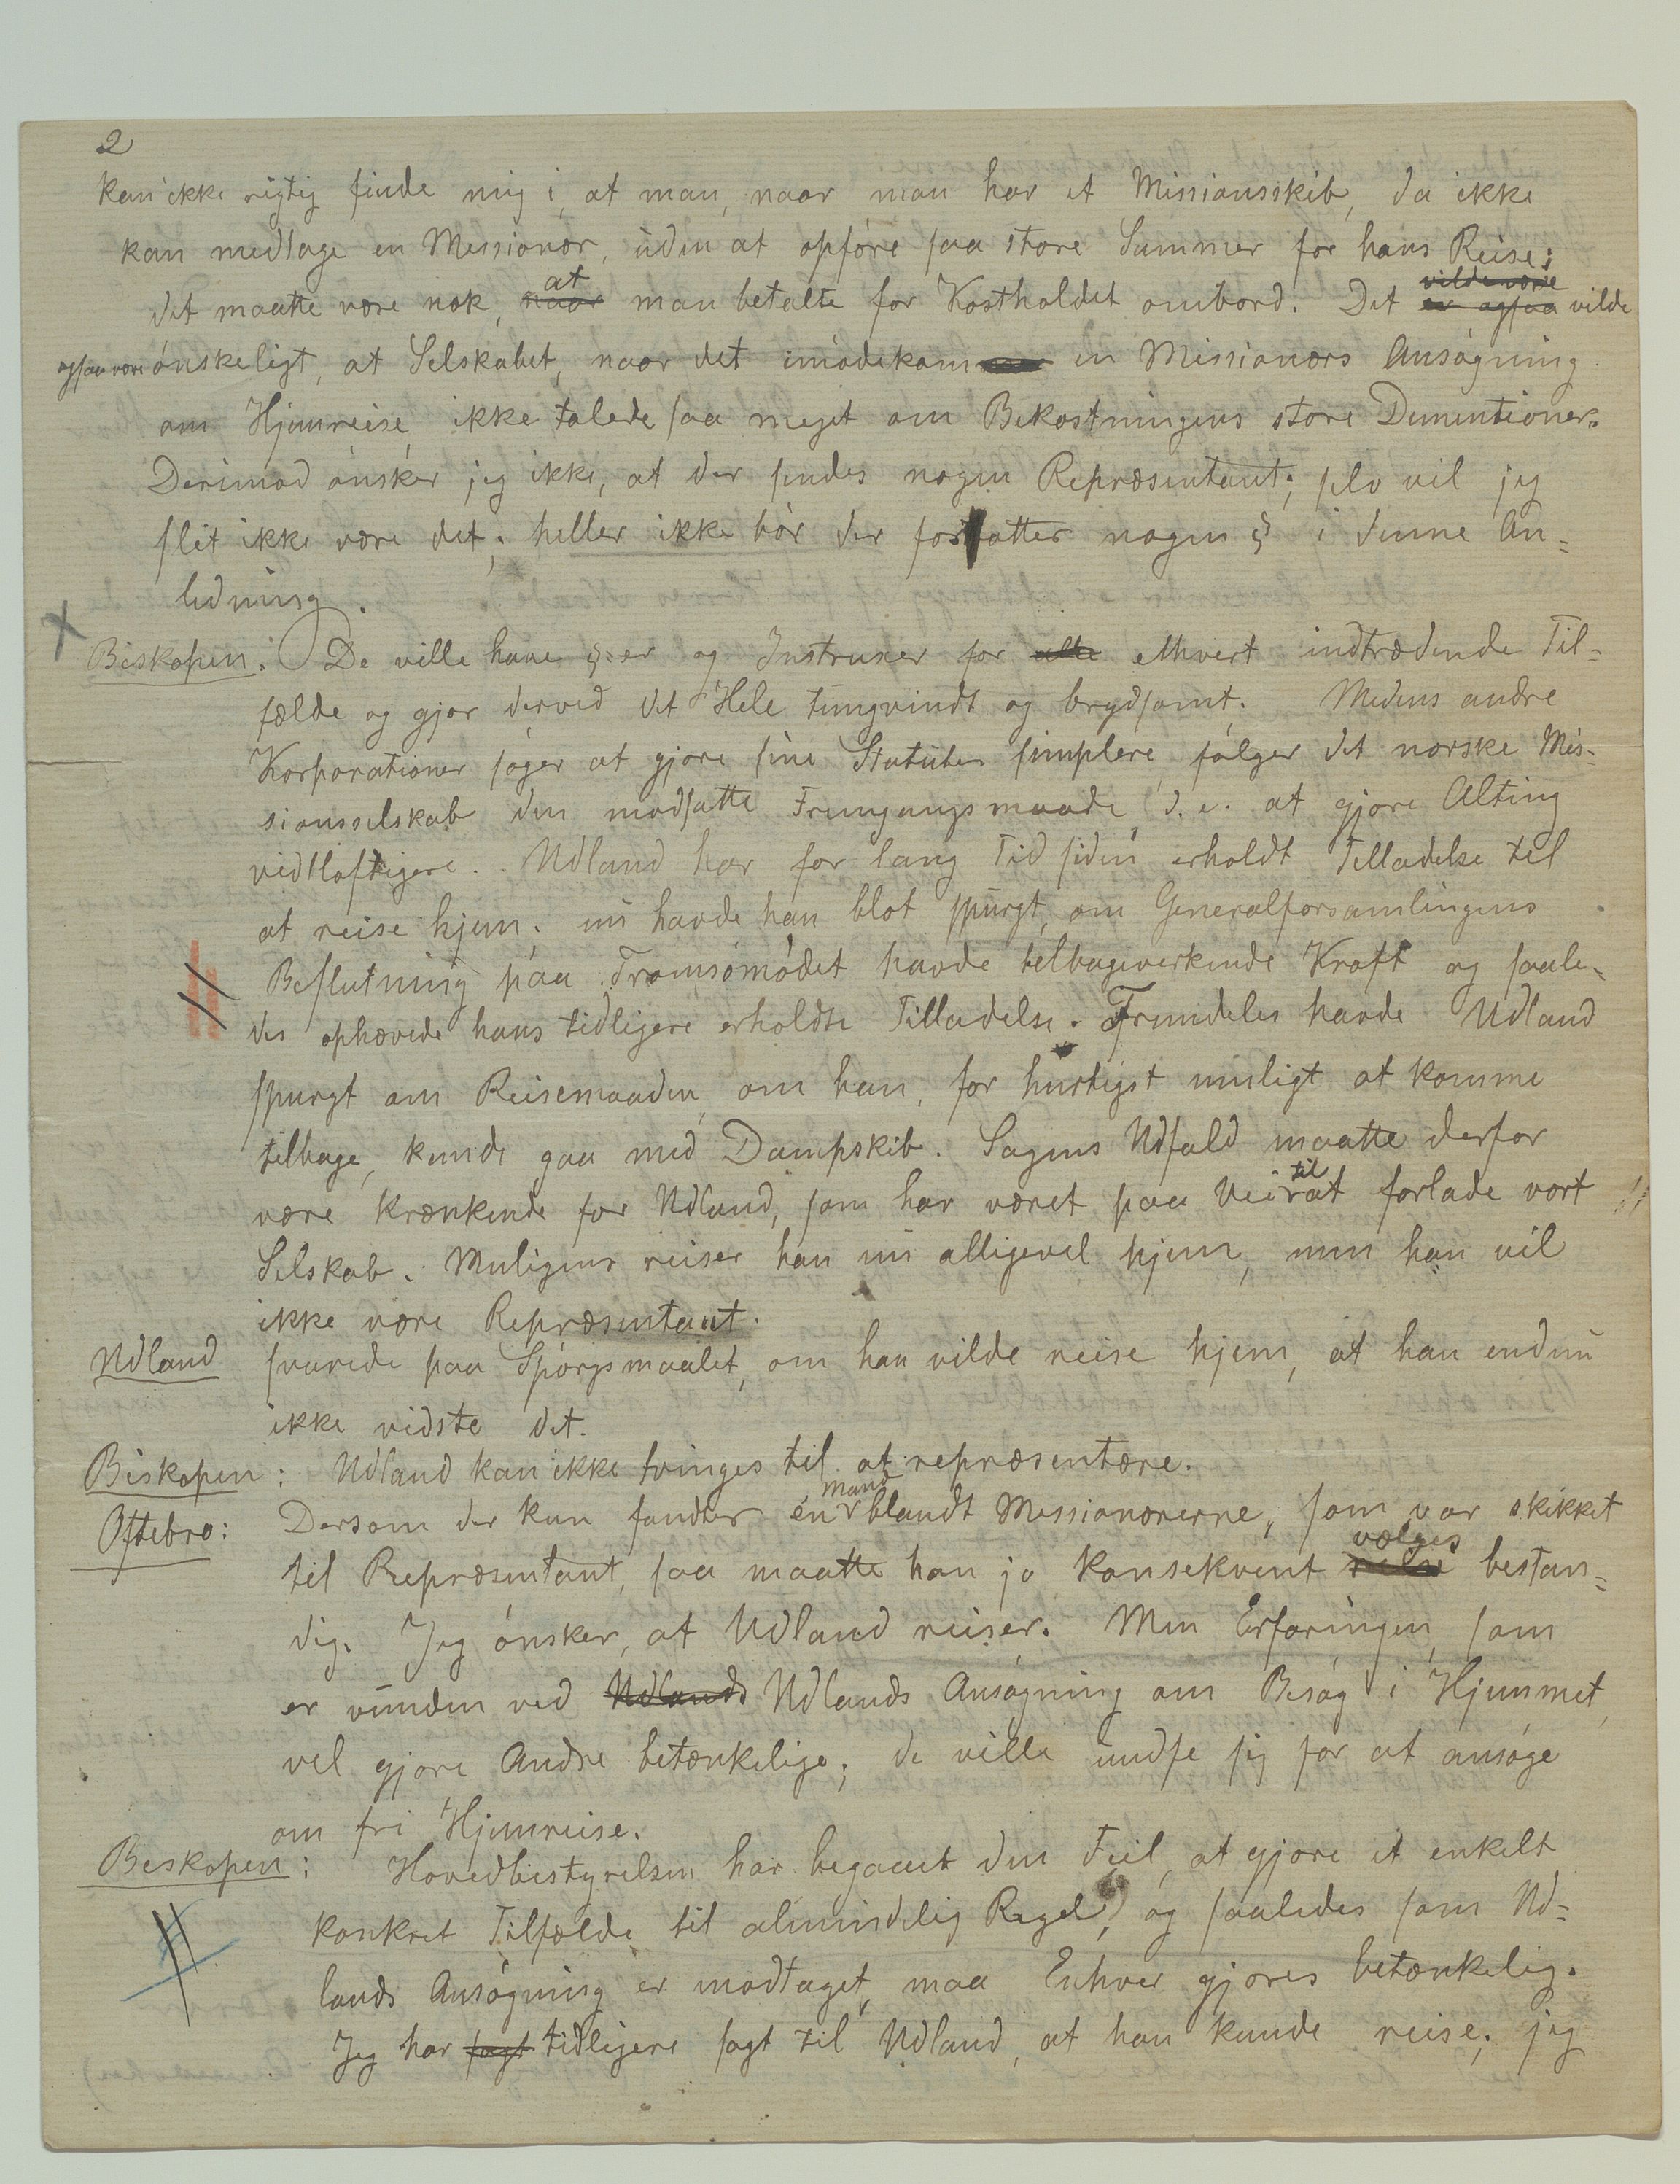 2
kan ikke rigtig finde mig i, at man, naar man har et Missionsskib, da ikke
kan medtage en Missionær, uden at opføre saa store Summer for hans Reise;
det maatte være nok, naar at man betalte for Kostholdet ombord. Det er ogsaa vilde være vilde
ogsaa være ønskeligt, at Selskabet, naar det imødekom en Missionærs Ansøgning
om Hjemreise, ikke talede saa meget om Bekostningens store Dimentioner.
Derimod ønsker jeg ikke, at der sendes nogen Repræsentant; selv vil jeg
slet ikke være det; heller ikke bør der forfattes nogen § i denne An=
ledning.
Biskopen: De ville have §:er og Instruxer for alle ethvert indtrædende Til=
fælde og gjør derved det Hele tungvindt og brydsomt. Medens andre
Korporationer søger at gjøre sine Statuter simplere, følger det norske Mis-
sionsselskab den modsatte Fremgangsmaade d.e. at gjøre Alting
vidtløftigere. Udland har for lang Tid siden erholdt Tilladelse til
at reise hjem; nu havde han blot spurgt, om Generalforsamlingens
Beslutning paa Tromsømødet havde tilbagevirkende Kraft og saale-
des ophævede hans tidligere erholdte Tilladelse. Fremdeles havde Udland
spurgt om Reisemaaden, om han, for hurtigst muligt at komme
tilbage, kunde gaa med Dampskib. Sagens Udfald maatte derfor
være krænkende for Udland, som har været paa Vei til at forlade vort
Selskab. Muligens reiser han nu alligevel hjem, men han vil
ikke være Repræsentant.
Udland svarede paa Spørgsmaalet, om han vilde reise hjem, at han endnu
ikke vidste det.
Biskopen: Udland kan ikke tvinges til at repræsentære.
Oftebro: Dersom der kun fandtes én Mand blandt Missionærerne, som var skikket
til Repræsentant, saa maatte han jo konsekvent reise vælges bestan=
dig. Jeg ønsker, at Udland reiser. Men Erfaringen, som
er vunden ved Udlands Udlands Ansøgning om Besøg i Hjemmet,
vil gjøre Andre betænkelige; de ville undse sig for at ansøge
om fri Hjemreise.
Biskopen: Hovedbestyrelsen har begaaet den Feil, at gjøre et enkelt
konkret Tilfælde til almindelig Regel, og saaledes som Ud=
lands Ansøgning er modtaget, maa Enhver gjøres betænkelig.
Jeg har sagt tidligere sagt til Udland, at han kunde reise; jeg